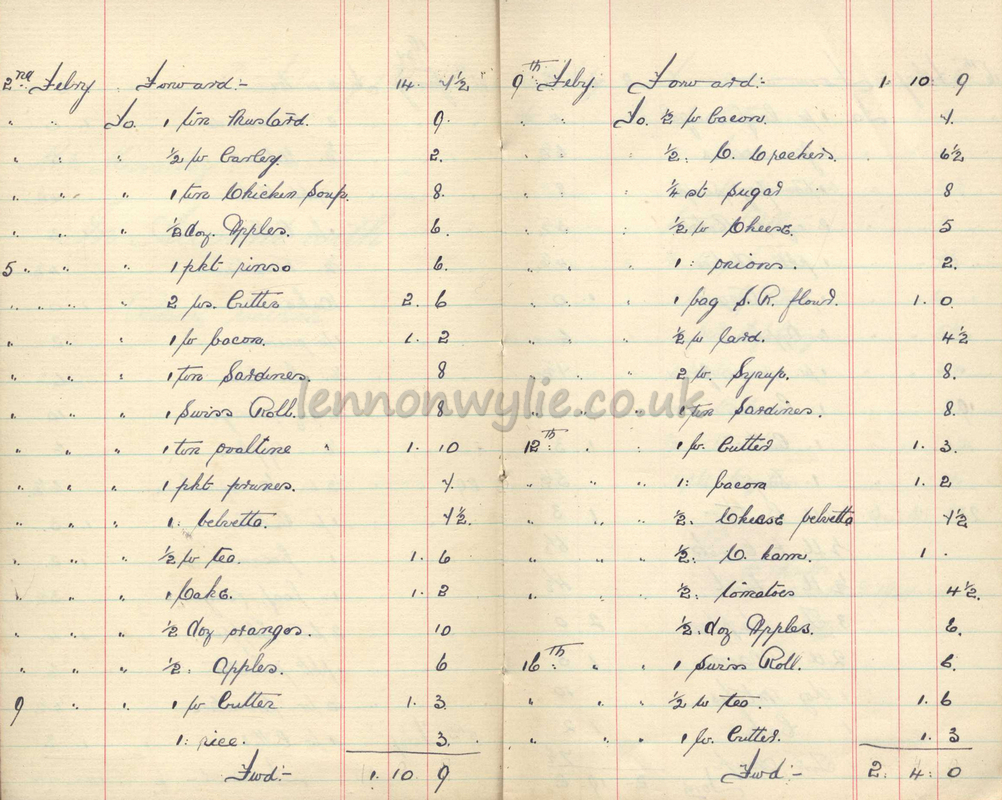 2nd Febry Forward:- 14. 7½
" " To. 1 tin Mustard. 9.
" " " ½ lb barley. 2.
" " " 1 tin Chicken Soup. 8.
" " " ½ doz. Apples. 6.
5 " " " 1 pkt rinso 6.
" " " 2 lbs. butter 2. 6
" " " 1 lb bacon. 1. 2
" " " 1 tin Sardines. 8
" " " 1 Swiss Roll. 8
" " " 1 tin ovaltine 1. 10
" " " 1 pkt prunes. 7.
" " " 1: velvetta. 7½.
" " " ½ lb tea. 1. 6
" " " 1 Cake. 1. 2
" " " ½ doz oranges. 10
" " " ½: apples. 6
9 " " 1 lb butter 1. 3.
1: rice. 3.
Fwd:- 1. 10 9
9th Feby. Forward:- 1. 10. 9
" " To. ½ lb bacon. 7.
" " " ½: C. Crackers. 6½
" " " ¼ st sugar 8
" " " ½ lb Cheese. 5
" " " 1: onions. 2.
" " " 1 bag S. R. flour. 1. 0
" " " ½ lb lard. 4½
" " " 2 lb. Syrup. 8.
" " " 1 tin Sardines. 8.
12th " " 1 lb. butter 1. 3.
" " " 1: bacon 1. 2
" " " ½: Cheese velvetta 7½
" " " ½: C. ham. 1 .
" " " ½: tomatoes 4½.
½. doz Apples. 6.
16th " " 1 Swiss Roll. 6.
" " " ½ lb tea. 1. 6
" " " 1 lb. butter. 1. 3
Fwd:- 2. 4. 0
lennonwylie.co.uk